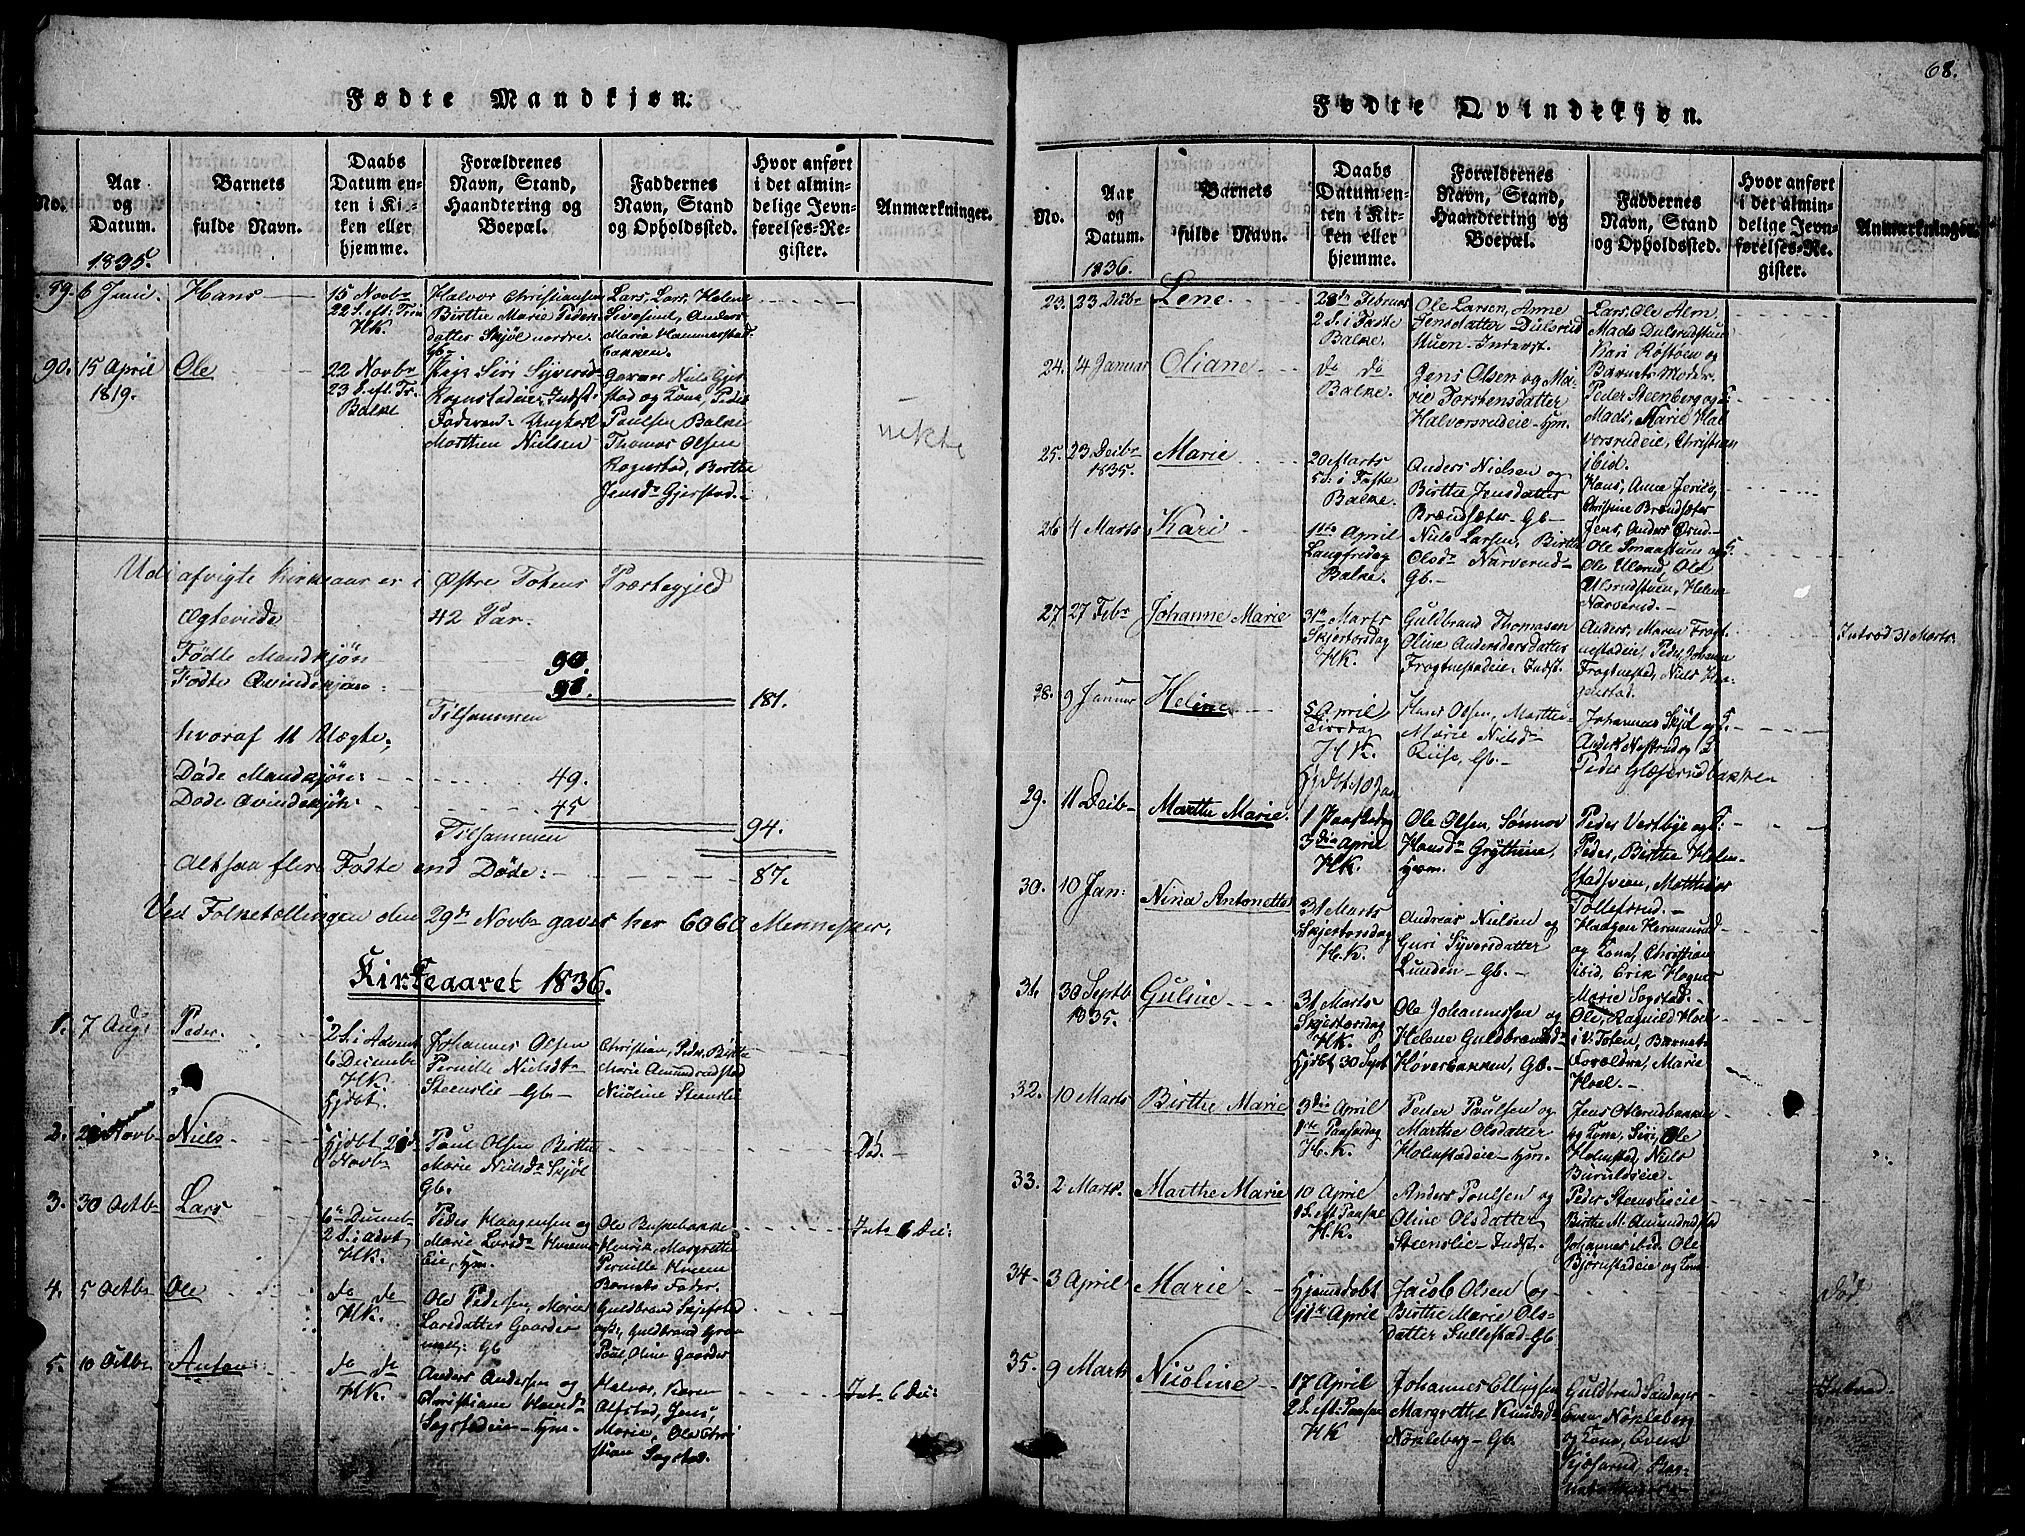 Fødte Mandkjøn.
No.
Aar
og
Datum.
Barnets
fulde Navn.
Daabs
Datum en-
ten i Kir-
ken eller
hjemme.
Forældrenes
Navn, Stand,
Haandtering og
Boepæl.
Faddernes
Navn, Stand
og Opholdssted.
Hvor anført
i det almin-
delige Jevn-
førelses-Re-
gister.
Anmærkninger.
1835.
89. 6 Juni.
Hans
15 Novbr
22 S. eft. Trin
HK.
Halvor Christiansen
Birthe Marie Peders
datter Skjøl nordre
Gb-
Lars, Lars, Helene
Sivesind, Anders
Marie Hammerstad
bakken.
90. 15 April
1819.
Ole
22 Novbr
23 S. eft. Tr.
Balke
Pige Siri Syverid
Rognstadeie Indst.
Faderen Ungkarl
Morthen Nielsen
Garmer Niels Gjer
stad og Kona, Peder
Paulsen Balke
Thomas Olsen
Rognstad, Birthe
Jensdr Gjerstad.
nekte
Udi afvigte Kirkeaar er i Østre Totens Præstegjeld
Ægteviede 42 Par.
Fødte Mandkjøn 90.
Fødte Qvindekjøn: 91.
Tilsammen 181.
hvoraf 11 Uægte;
Døde Mandkjøn: 49.
Døde Qvindekjøn: 45
Tilsammen 94.
Altsaa flere Fødte end Døde: 87.
Ved Folketællingen den 29de Novbr gaves her 6060 Mennesker.
Kirkeaaret 1836.
1. 7 Aug:
Peder.
2 S. i Advent
6 Decembr
HK.
Hjdbt.
Johannes Olsen
Pernille Nielsdr
Steenslie Gb-
Christian, Peder, Birthe
Marie Amundrudstad
Nicoline Steenslie
2. Novbr
Niels
Hjdbt
Novbr
Paul Olsen Birthe
Marie Nielsdr Skjøl
Gb.
Død.
3. 30 Octbr
Lars
6te Decemb
2 S. i Advt
HK.
Peder Haagensen og
Marie Larsdr Hveem
Eie, Hm.
Ole Buskebakke
Henrik, Margrethe
Pernille Hveem
Barnets Fader.
Int. 6 Dec:
4. 5 Octbr
Ole
do do
HK.
Ole Pedersen, Maria
Larsdatter Gaarder
Gb
Guldbrand Skjefstad
Guldbrand
Paul, Oline Gaarder
5. 10 Octbr
Anton:
do do
HK.
Anders Andersen og
Christiane Hansdr
Sogstadeie Hm.
Halvor, Karen
Alfstad, Jens,
Marie, Ole Chri
stian Sogstad.
Int. 6 Dec:
68.
Fødte Qvindekjøn.
No.
Aar
og
Datum.
Barnets
fulde Navn.
Daabs
Datum en-
ten i Kir-
ken eller
hjemme.
Forældrenes
Navn, Stand,
Haandtering og
Boepæl.
Faddernes
Navn, Stand
og Opholdssted.
Hvor anført
i det almin-
delige Jevn-
førelses-Re-
gister.
Anmærkninger.
1836.
23. 23 Decbr
Lene
28de Februar
2 S. i Faste
Balke.
Ole Larsen, Anne
Jensdatter Dulsrud
stuen Inderst.
Lars, Ole Alm
Mads Dulsrudstuen
Kari Røstøen og
Barnets Moder.
24. 4 Januar
Oliane
do do
Balke.
Jens Olsen og Ma-
rie Torstensdatter
Halvorsrudeie Hm.
Peder Steenberg og
Mads, Marie Hal
vorsrudeie, Christian
ibid.
25. 23 Decbr
1835.
Marie
20 Marts
5 S. i Faste
Balke.
Anders Nielsen og
Birthe Jensdatter
Brendsæter Gb-
Hans, Anne
Christine Brendsæter
Jens, Anders
26 4 Marts
Kari
1ste April
Langfredag
Balke.
Niels Larsen, Birthe
Olsdr Narverud
Gb.
Ole Smaastuen og
Ole Ulsrud, Ole
Ulsrudstuen, Helene
Narverud.
27 27 Febr
Johanne Marie
31te Marts
Skjertorsdag
HK.
Guldbrand Thomasen
Oline Andersdatter
Frogtnestadeie Indst.
Anders, Maren Frogt
nestadeie, Peder, Johanne
Frogtnestad, Niels
Introd 31 Marts
28. 9 Januar
Heline
5 April
Tirsdag
H.K.
Hans Olsen, Marthe
Marie Nielsdr
Riise, Gb.
Johannes Skjøl og
Anders Narverud
Peder Glæserudbakke
29. 11 Decbr
Marthe Marie
Hjdbt 10 Jan
1 Paaskedag
3die April
HK.
Ole Olsen, Sønnov
Hansdr Grythine,
Hm.
Peder Vestbye og
Peder, Birthe Holm
stadsveen, Matthias
Tollefsrud.
30. 10 Jan:
Nina Antonette
31 Marts
Skjertorsdag
H.K.
Andreas Nielsen og
Guri Syversdatter
Lunden Gb.
Haagen Hermansrud
og Kona, Christian
ibid, Erik
Marie Sogstad.
31. 30 Septb
1835.
Guline
31 Marts
Skjertorsdag
HK.
Hjdbt 30 Sept
Ole Johannessen og
Helene Guldbrandsdr
Høverbakken, Gb.
Ole, Ragnild Hoel
i V. Toten, Barnets
Forældre, Marie
Hoel.
32. 10 Marts
Birthe Marie
3die April
1ste Paaskedag
H.K.
Peder Paulsen og
Marthe Olsdatter
Holmstadeie Hm.
Jens
og Kona, Siri, Ole
Holmstad, Niels
33. 2 Marts.
Marthe Marie
10 April
1 S. eft Paaske
H.K.
Anders Poulsen og
Oline Olsdatter
Steenslie Indst.
Peder Steenslieeie
Birthe M. Amundrudstad
Johannes ibid. Ole
Bjørnstadeie og Kona
34. 3 April
Marie
Hjemdøbt
April
Jacob Olsen og
Birthe Marie Ols
datter Sullestad Gb.
Død.
35. 9 Marts
Nicoline
17 April
2 S. eft. Paaske
HK
Johannes Ellingsen
Margrethe Knudsdr
Nørdleberg Gb.
Guldbrand
Even Nørdleberg
og Kona, Even
Introd.